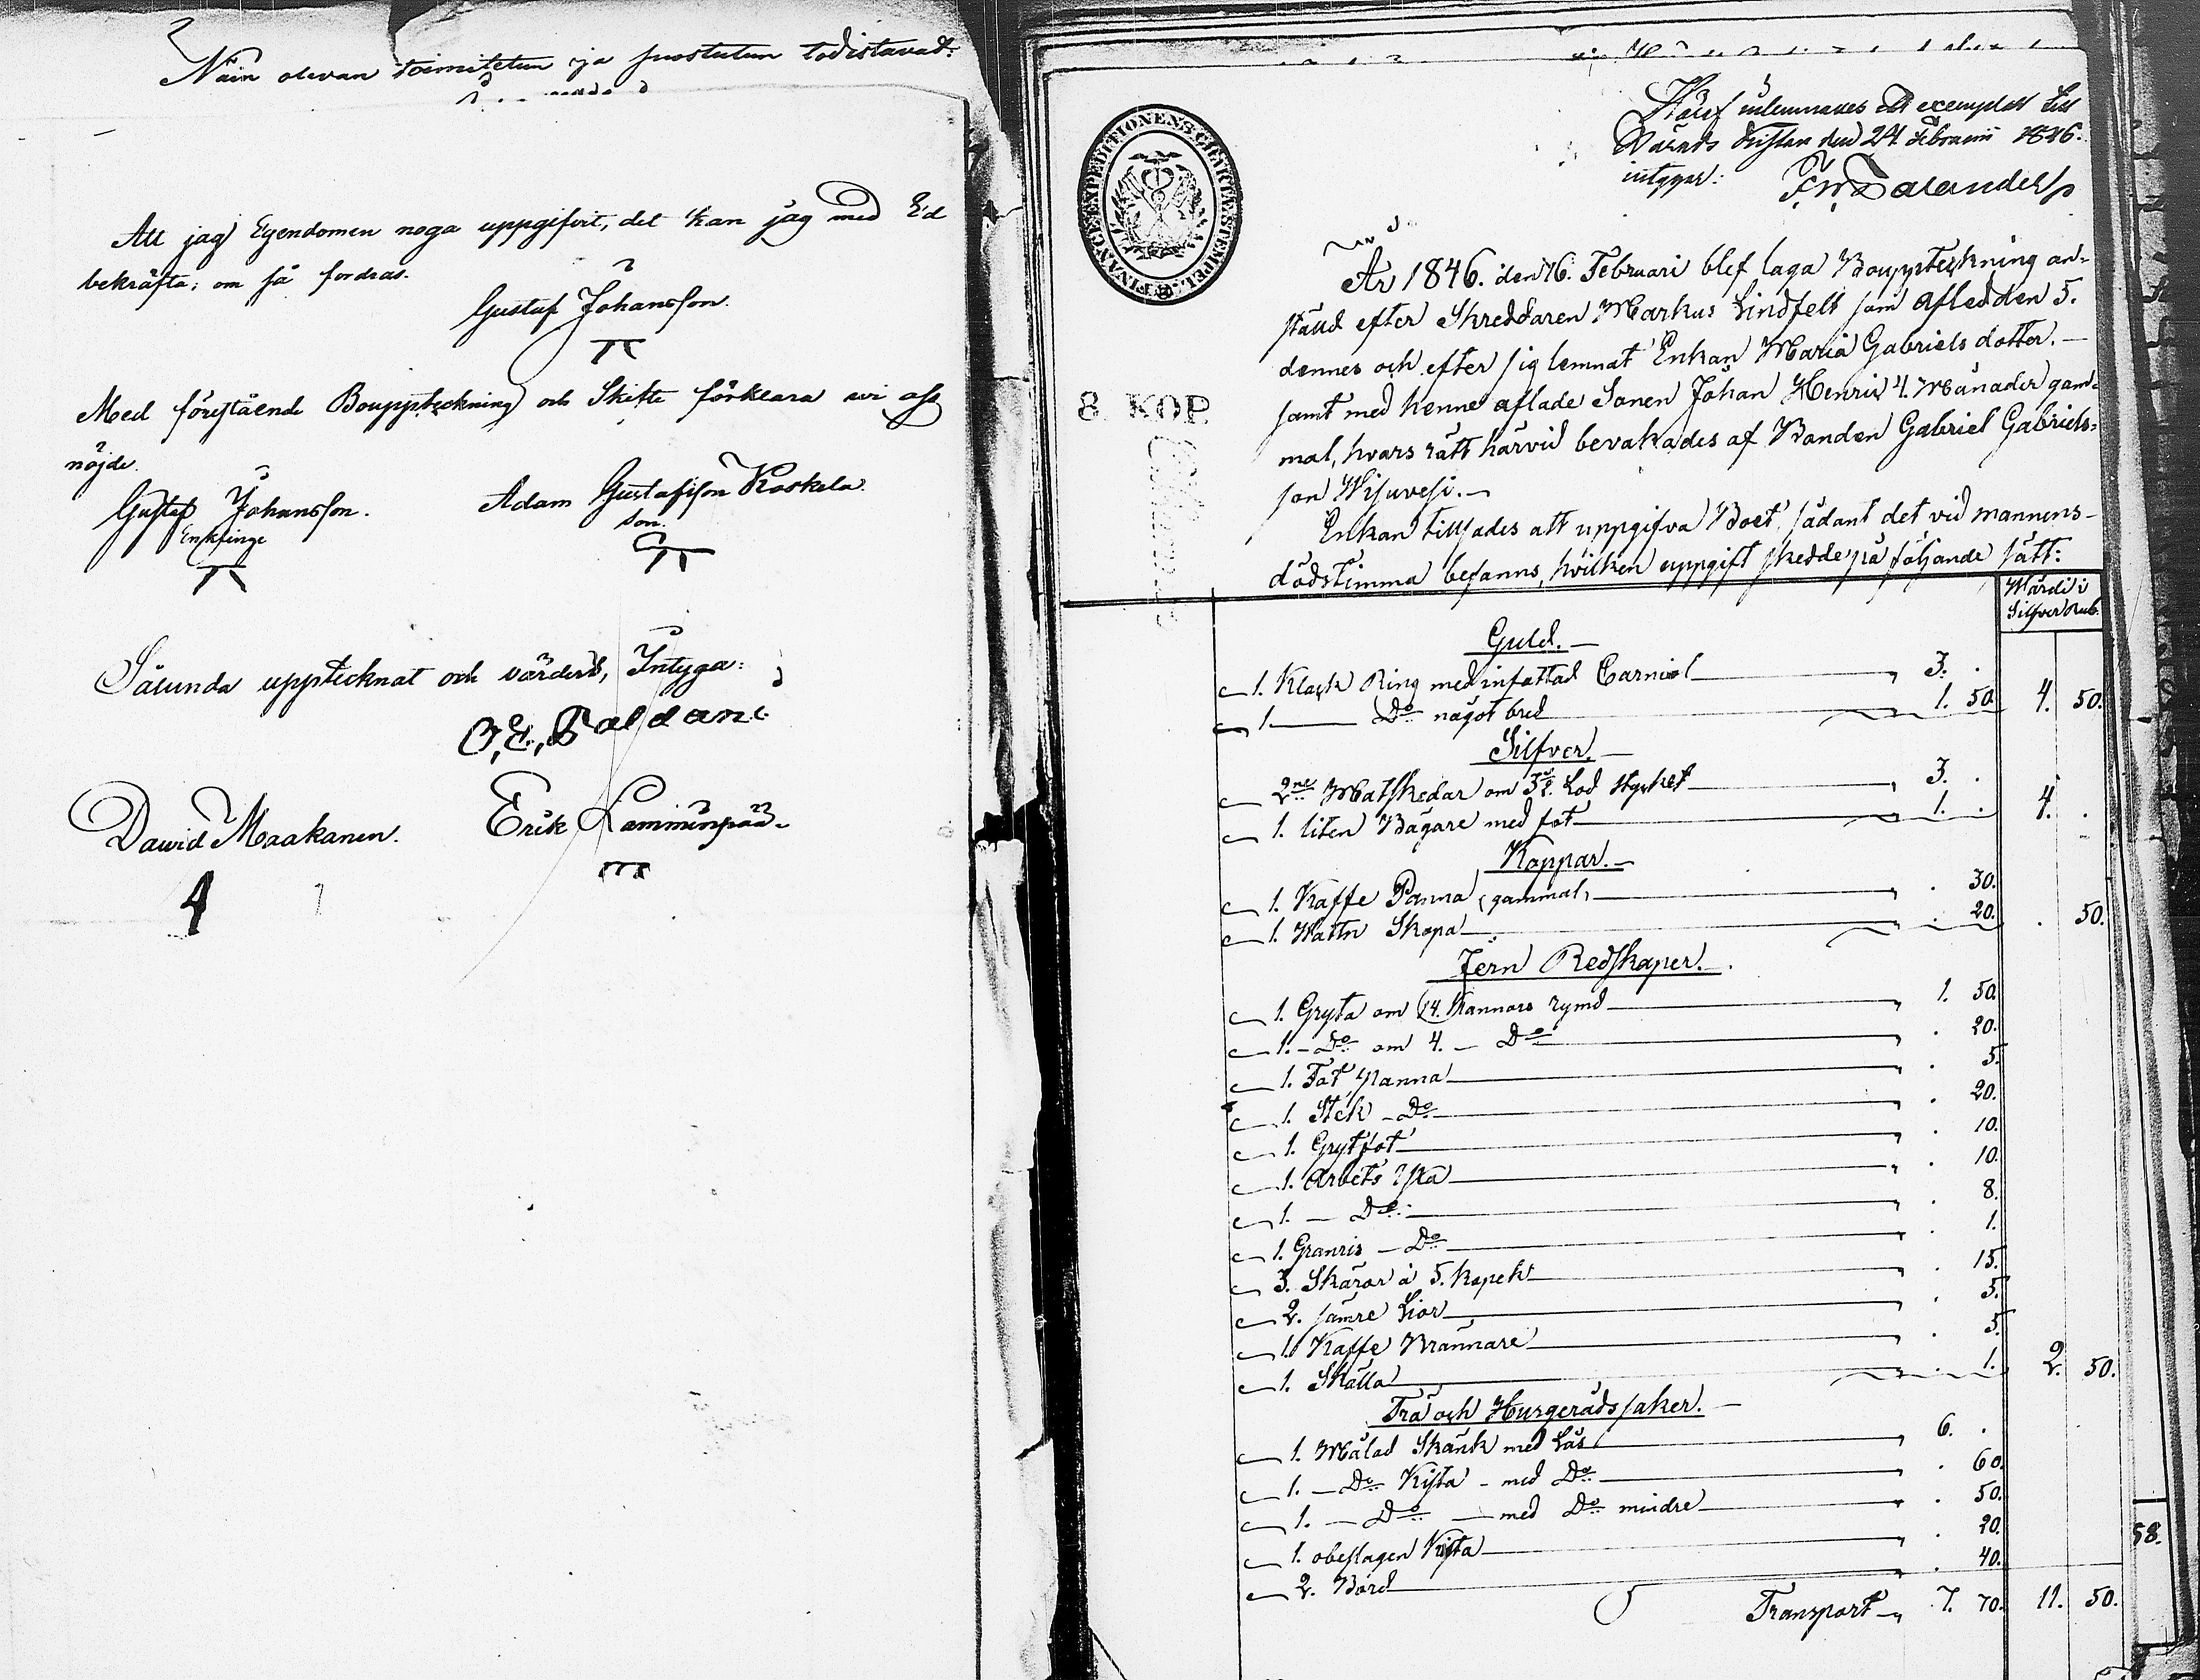 Näin olevan toimitetun ja suostutun todistavat:
Att jag Egendomen noga uppgifvit, det kan jag med Ed
bekräfta, om så fordras.
Gustaf Johansson.
Med förestående Bouppteckning och Skifte förklara wi oss
nöjde.
Gustaf Johansson. Adam Gustafsson Koskela
Enklinge son.
Sålunda upptecknat och värderat, Intyga:
Dawid Maakanen. Erik Lamminpää
FINANCE-EXPEDITIONENS CHARTÆ STEMPEL
8 KOP.
Häraf inlemnades ett exemplar till
den 24 Februarii 1846.
intygar:
År 1846. den 16. Februari blef laga Bouppteckning an-
stäld efter Skreddaren Markus Lindfelt som afled den 5.
dennes och efter sig lemnat Enkan Maria Gabriels dotter. —
samt med henne aflade Sonen Johan Henric 4. Månader gam-
mal, hvars rätt härvid bevakades af Bonden Gabriel Gabriels-
son Wisuvesi. —
Enkan tillsades att uppgifva Boet, sådant det vid mannens
dödstimma befanns, hvilken uppgift skedde på följande sätt:
Wärde i
Silfver Rub.
Guld. —
1. Klack Ring med infattad Carniol 3. .
1. — Do något bred 1. 50 4. 50.
Silfver. —
2ne Matskedar om 3½ Lod stycket 3. .
1. liten Bägare med fot 1. . 4. .
Koppar. —
1. Kaffe Panna, gammal, . 30.
1. Wattn Skopa . 20. . 50.
Jern Redskaper.
1. Gryta om 14. Kannors rymd 1. 50
1. — Do om 4. — Do . 20.
1. Fat panna . 5.
1. Stek — Do . 20.
1. Grytfot . 10.
1. Arbets Yxa . 10.
1. — Do . 8.
1. Granris — Do . 1.
3. Skäror à 5. Kopek . 15.
2. sämre Lior . 5.
1. Kaffe Brännare . 5.
1. Skälla . 1. 2. 50.
Trä och Husgeråds saker. —
1. Målad Skänk med Lås 6. .
1. — Do Kista — med Do . 60.
1. — Do — med Do mindre . 50.
1. obeslagen Kista . 20.
2. Bord . 40.
Transport 7. 70. 11. 50.
58.